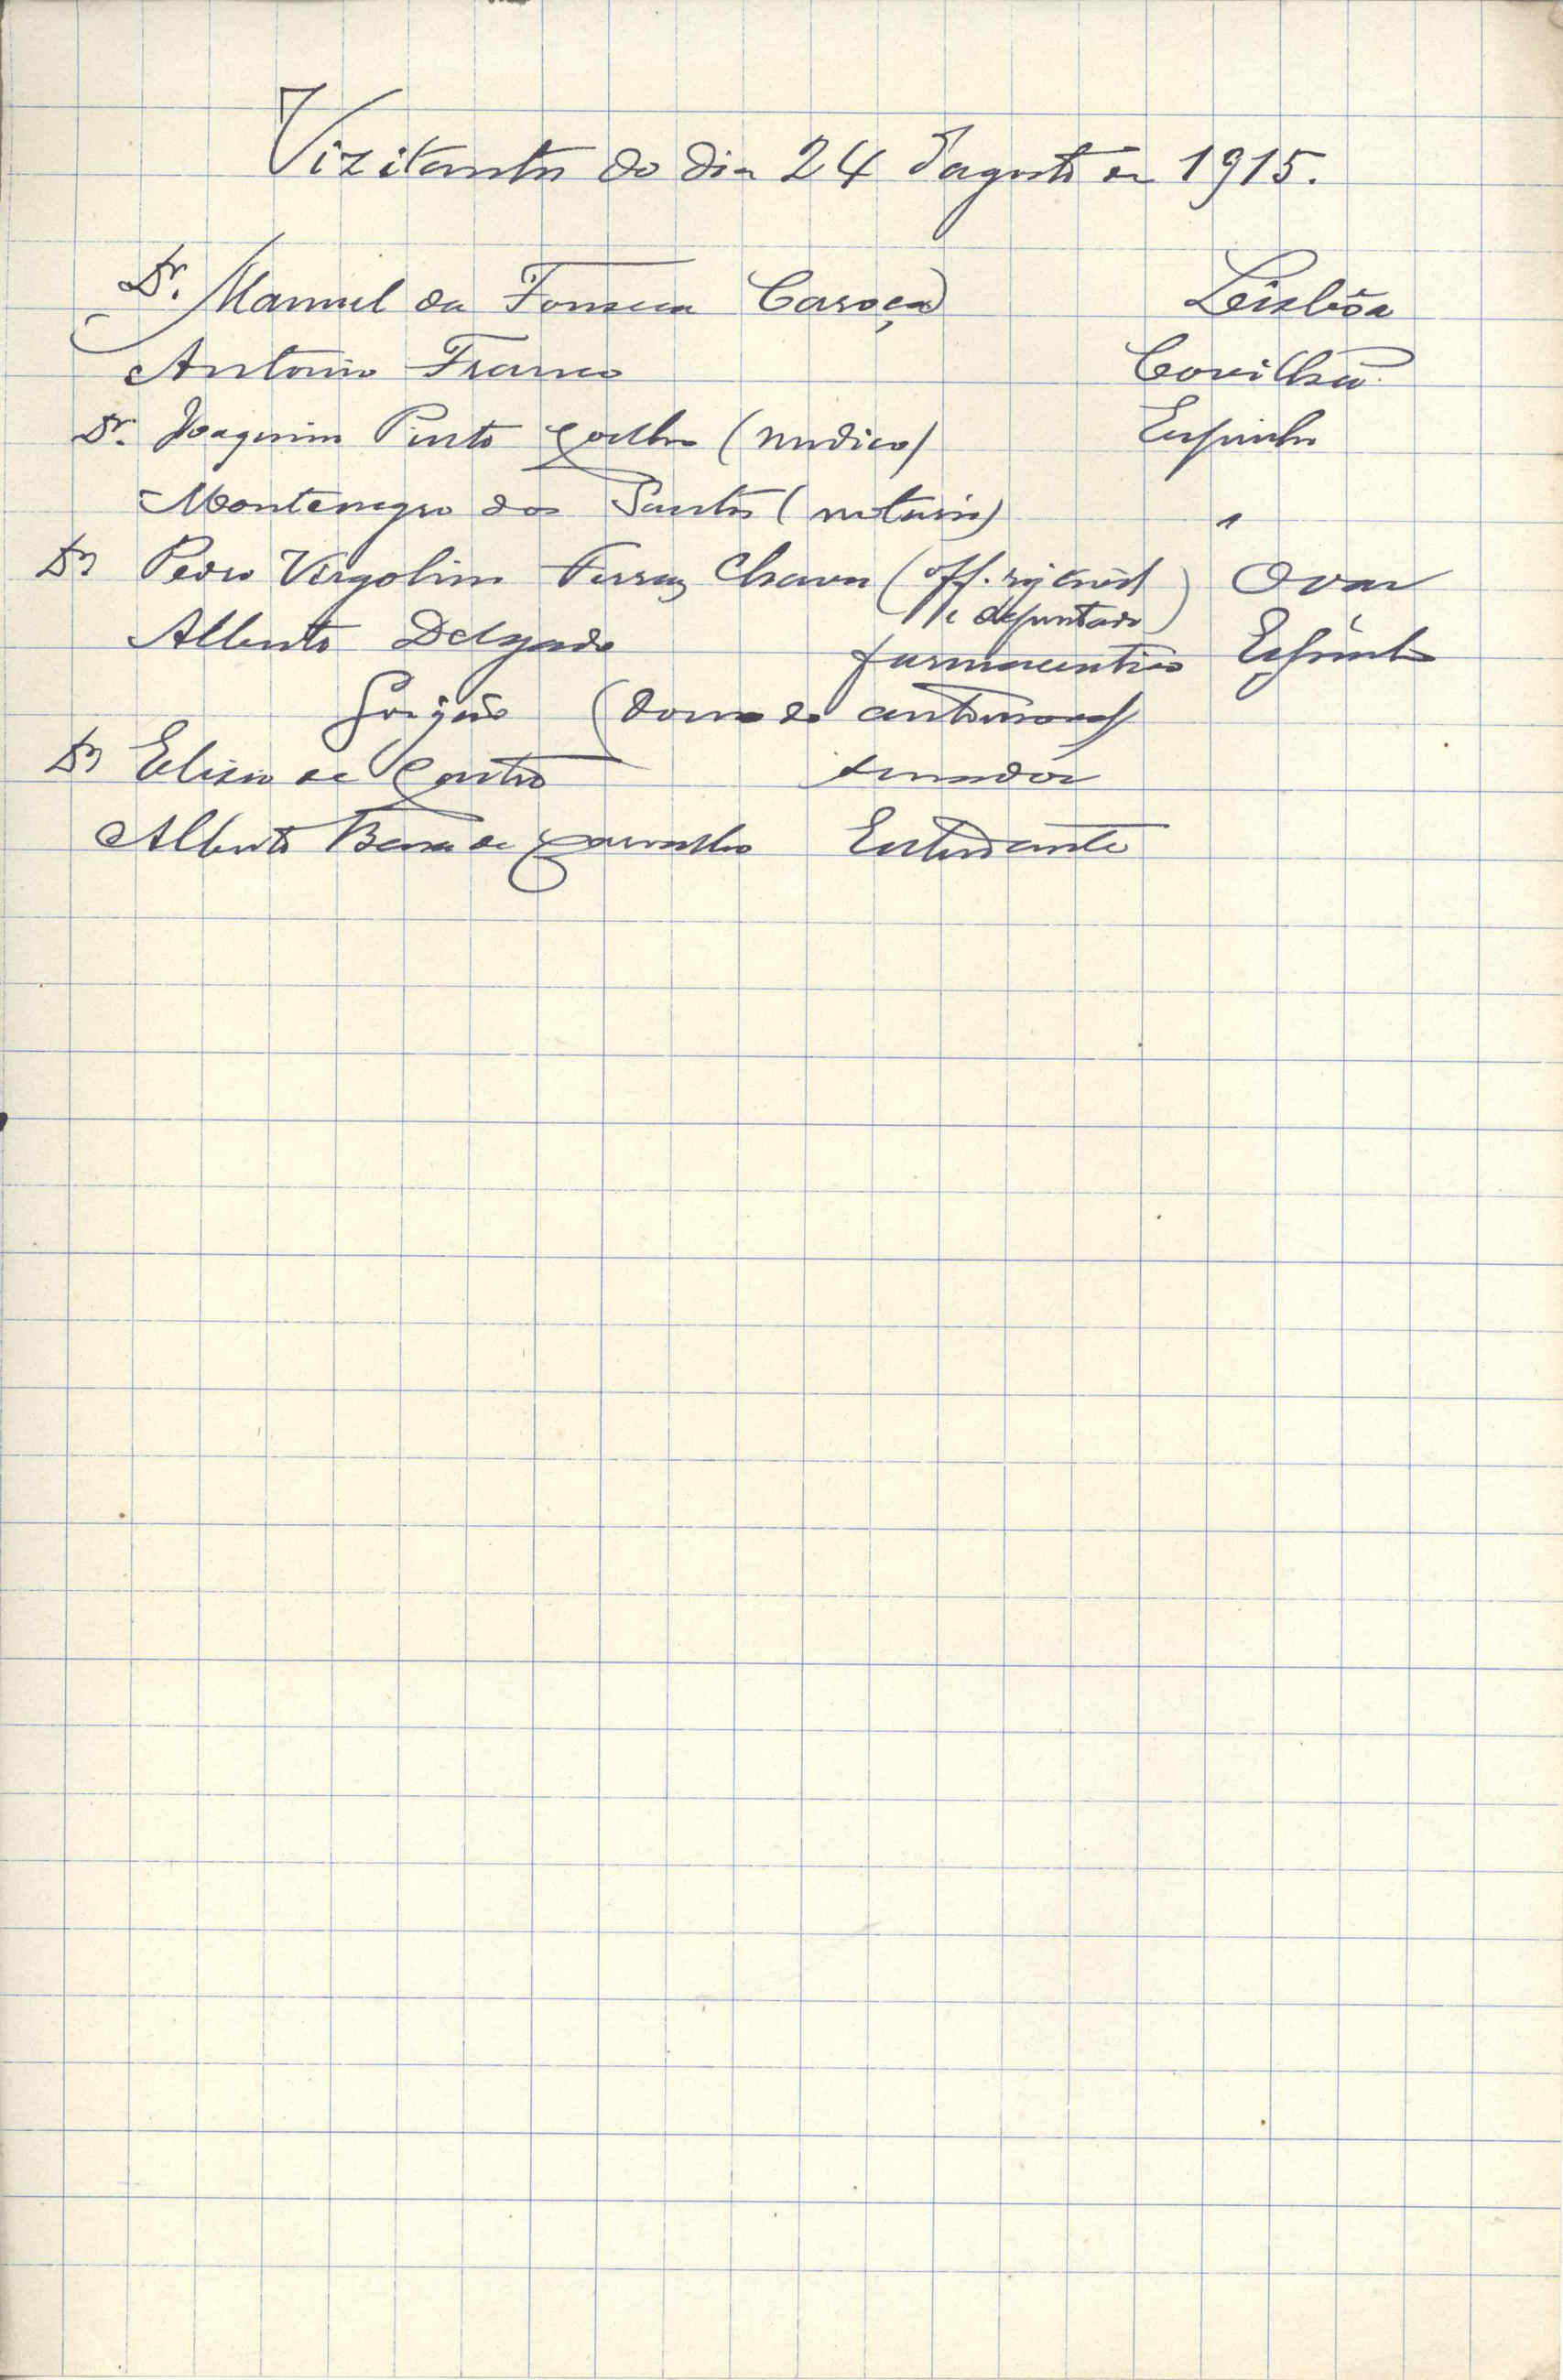 Vizitantes do dia 24 d'agosto de 1915.
Dr. Manuel da Fonseca Caroça Lisbôa
Antonio Franco Covilhã
Dr. Joaquim Pinto Coelho (medico) Espinho
Montenegro dos Santos (notario) "
Dr Pedro Virgolino Ferraz Chaves (off. reg. civil Ovar
e deputado)
Alberto Delgado farmaceutico Espinho
Gorjão (dono do automovel)
Dr Elisio de Castro senador
Alberto de Carvalho Estudante